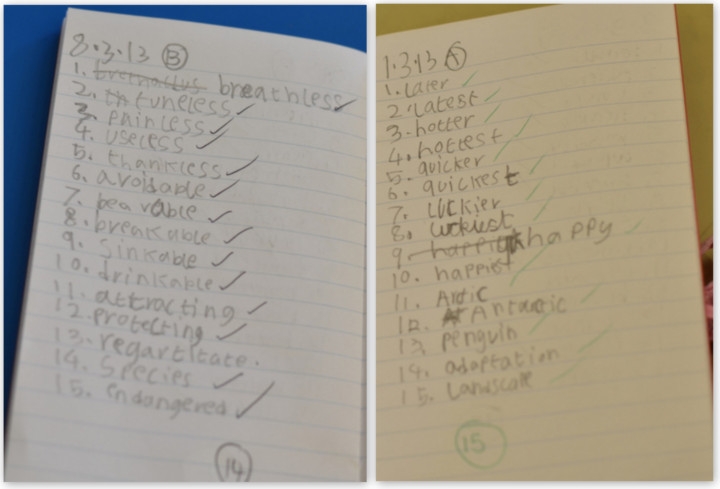 8.3.13 B
1. breathless
2. tuneless
3. painless
4. useless
5. thankless
6. avoidable
7. bearable
8. breakable
9. Sinkable
10. drinkable
11. attracting
12. protecting
13. regartitate.
14. Species
15. endangered
14
1.3.13 A
1. Later
2. Latest
3. hotter
4. hottest
5. quicker
6. quickest
7. Luckier
8.
9. happy
10. happiest
11. Artic
12. Antartic
13. penguin
14. adaptation
15. Landscape
15